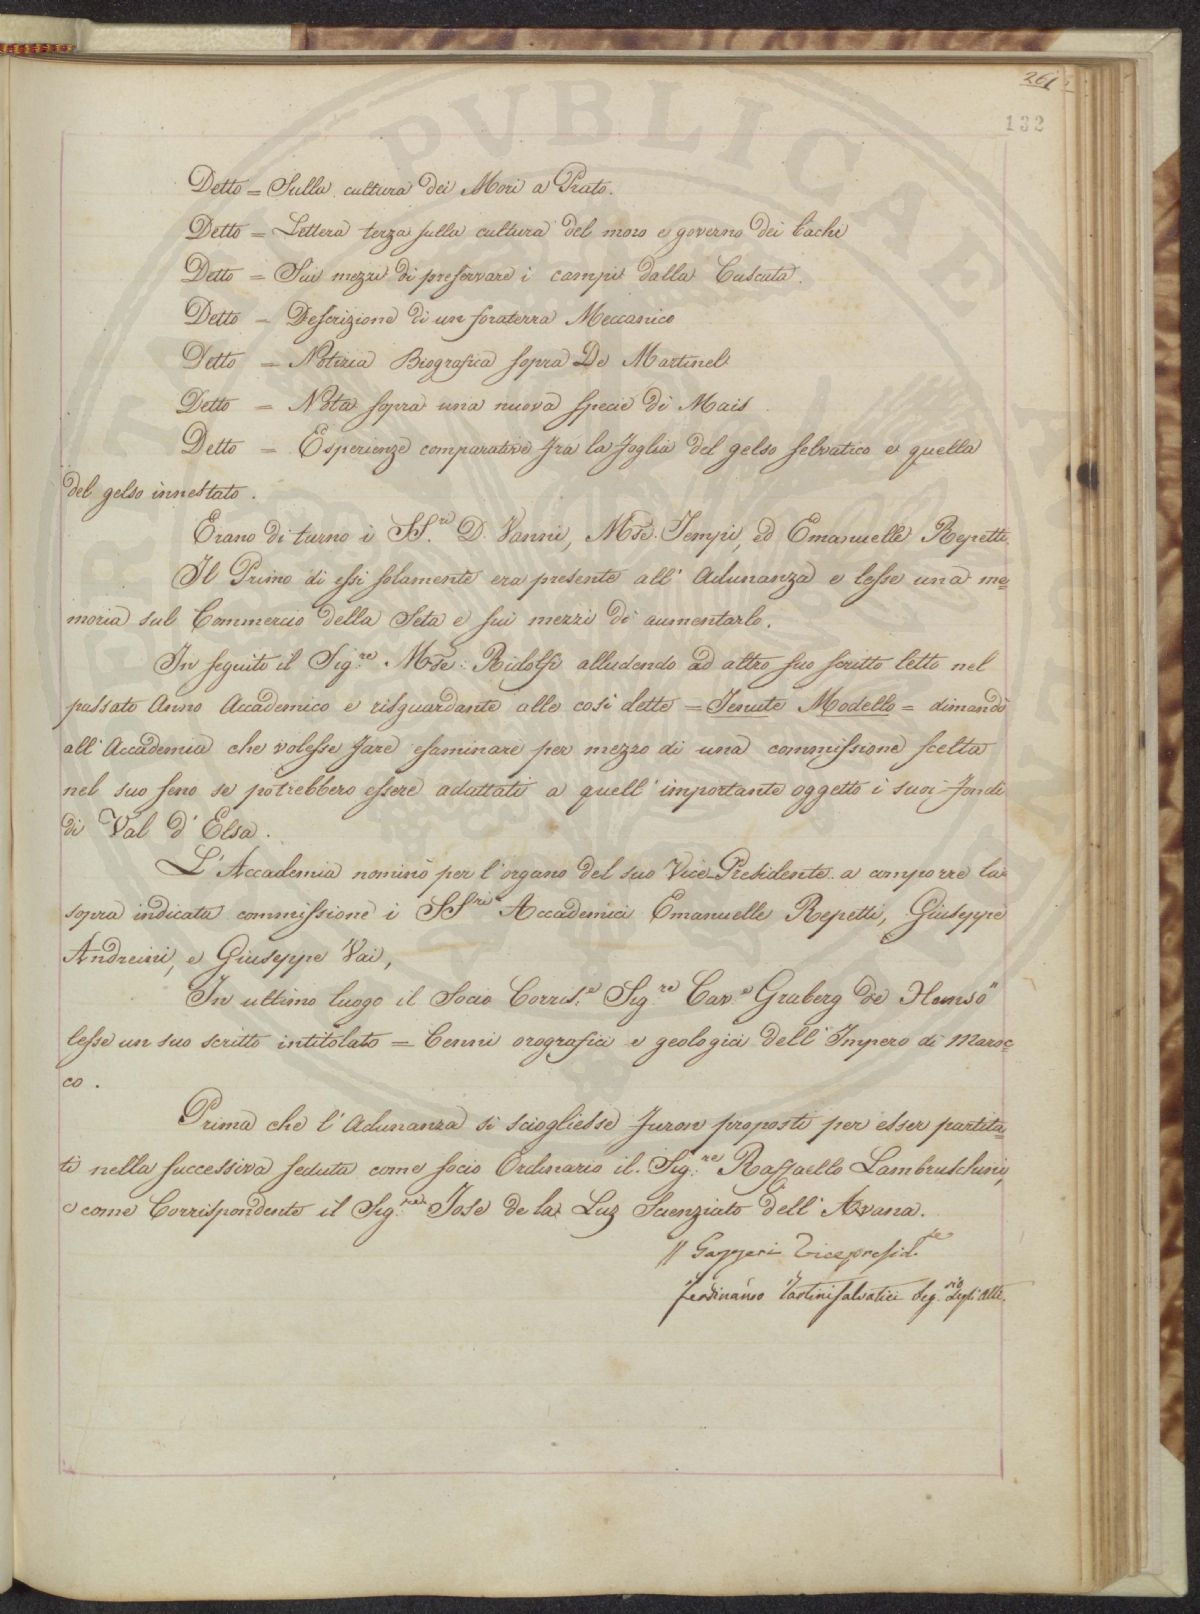 261
132
Detto = Sulla cultura dei Mori a Prato.
Detto = Lettera terza sulla cultura del moro e governo dei bachi
Detto = Sui mezzi di preservare i campi dalla Cuscuta.
Detto = Descrizione di un foraterra Meccanico
Detto = Notizia Biografica sopra De Martinel
Detto = Nota sopra una nuova specie di Mais
Detto = Esperienze comparative fra la foglia del gelso selvatico e quella
del gelso innestato.
Erano di turno i SS.ri D. Vanni, Mse. Tempi, ed Emanuelle Repetti.
Il Primo di essi solamente era presente all' Adunanza e lesse una me=
moria sul Commercio della Seta e sui mezzi di aumentarlo.
In seguito il Sig.re Mse: Ridolfi alludendo ad altro suo scritto letto nel
passato Anno Accademico e risguardante alle così dette = Tenute Modello = dimandò
all' Accademia che volesse fare esaminare per mezzo di una commissione scelta
nel suo seno se potrebbero essere adattati a quell' importante oggetto i suoi fondi
di Val d' Elsa.
L' Accademia nominò per l' organo del suo Vice-Presidente a comporre la
sopra indicata commissione i SSri Accademici Emanuelle Repetti, Giuseppe
Andreini, e Giuseppe Vai,
In ultimo luogo il Socio Corris.e Sig.re Cav.e Graberg de Hemsö
lesse un suo scritto intitolato = Cenni orografici e geologici dell' Impero di Maroc=
co.
Prima che l' Adunanza si sciogliesse furon proposti per esser partita=
ti nella successiva seduta come socio Ordinario il Sig.re Raffaello Lambruschini,
e come Corrispondente il Sig.re Jose de la Luz Scienziato dell' Avana.
// Gazzeri Vicepresid.te
Ferdinando Tartini Salvatici Seg.rio degli Atti.